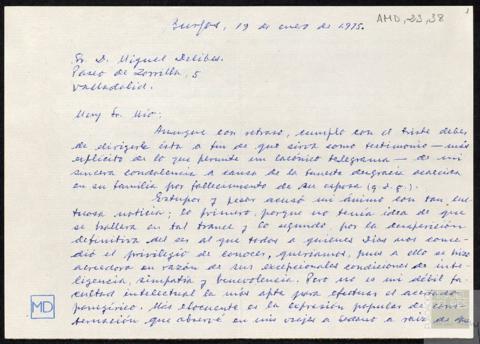 Burgos, 19 de enero de 1975.
AMD, 23, 38
1
Sr. D. Miguel Delibes.
Paseo de Zorrilla, 5
Valladolid.
Muy Sr. Mío:
Aunque con retraso, cumplo con el triste deber
de dirigirle ésta a fin de que sirva como testimonio — más
explícito de lo que permite un lacónico telegrama — de mi
sincera condolencia a causa de la funesta desgracia acaecida
en su familia por fallecimiento de su esposa (q.d.g.).
Estupor y pesar acusó mi ánimo con tan luc-
tuosa noticia; lo primero, porque no tenía idea de que
se hallara en tal trance y lo segundo, por la desaparición
definitiva del ser al que todos a quienes Dios nos conce-
dió el privilegio de conocer, queríamos, pues a ello se hizo
acreedora en razón de sus excepcionales condiciones de inte-
ligencia, simpatía y benevolencia. Pero no es mi débil fa-
cultad intelectual la más apta para efectuar el acertado
panegírico. Más elocuente es la expresión popular de cons-
ternación que observé en mis viajes a Sedano a raíz de su
MD